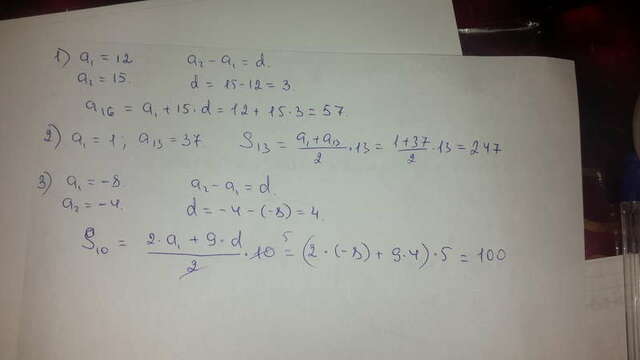 1) a₁ = 12 a₂ - a₁ = d.
a₂ = 15. d = 15-12 = 3.
a₁₆ = a₁ + 15·d = 12 + 15·3 = 57.
2) a₁ = 1; a₁₃ = 37 S₁₃ = (a₁+a₁₃)/2 · 13 = (1+37)/2 · 13 = 247
3) a₁ = -8. a₂ - a₁ = d.
a₂ = -4. d = -4-(-8) = 4.
S₁₀ = (2·a₁ + 9·d)/2 · 10 ⁵ = (2·(-8) + 9·4)·5 = 100